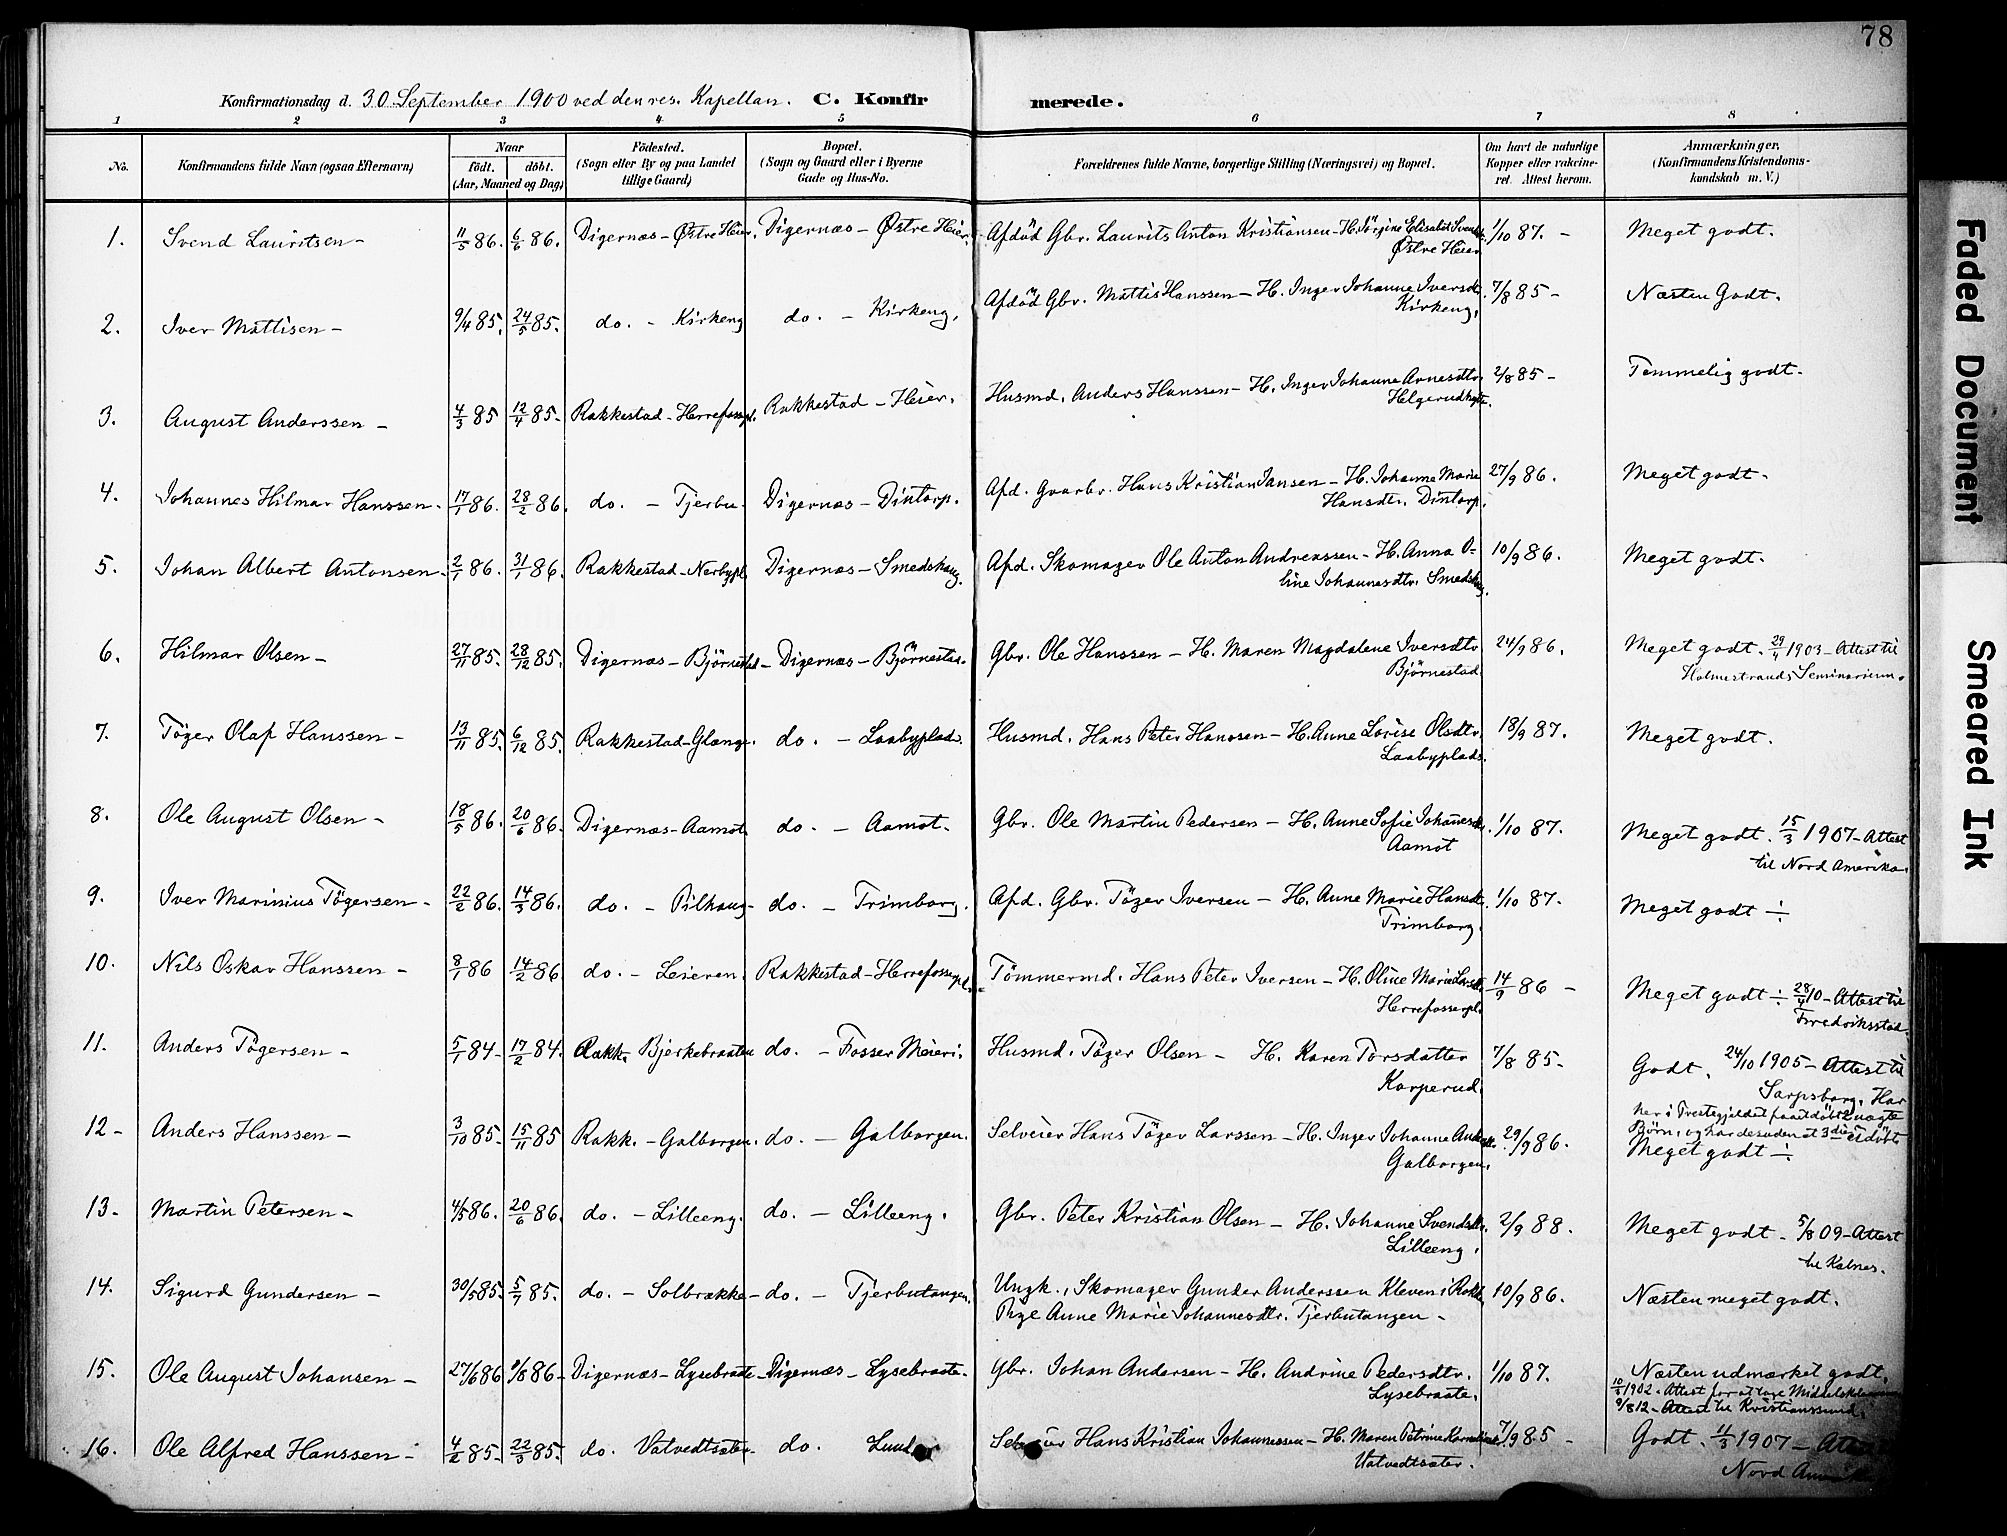 78
Konfirmationsdag d. 30 September 1900 ved den res. Kapellan. C. Konfirmerede.
1 2 3 4 5 6 7 8
No. Konfirmandens fulde Navn (ogsaa Efternavn) Naar födt. döbt. (Aar, Maaned og Dag) Födested. (Sogn eller By og paa Landet tillige Gaard) Bopæl. (Sogn og Gaard eller i Byerne Gade og Hus-No. Forældrenes fulde Navne, borgerlige Stilling (Næringsvei) og Bopæl. Om havt de naturlige Kopper eller vakcineret. Attest herom. Anmærkninger, (Konfirmandens Kristendomskundskab m. V.)
1. Svend Lauritsen – 11/5 86. 6/6 86. Digernæs – Østre Heier. Digernæs – Østre Heier. Afdöd Gbr. Laurits Anton Kristiansen – H. Jörgine Elisabet Svendsd. 1/10 87. – Meget godt.
Østre Heier
2. Iver Mattisen – 9/4 85. 24/5 85. do. – Kirkeng do. – Kirkeng. Afdöd Gbr. Mattis Hanssen – H. Inger Johanne Iversdtr. 7/8 85 – Næsten Godt.
Kirkeng.
3. August Anderssen – 4/3 85 12/4 85. Rakkestad – Herrefosspl. Rakkestad – Heier. Husmd. Anders Hanssen – H. Inger Johanne Arnesdtr. 2/8 85 – Temmelig godt.
Helgerudhyt.
4. Johannes Hilmar Hanssen. 17/1 86. 28/2 86. do. – Tjerbu. Digernæs – Dintorp. Afd. Gaarbr. Hans Kristian Jansen – H. Johanne Marie 27/9 86. Meget godt.
Hansdtr. Dintorp.
5. Johan Albert Antonsen. 2/1 86. 31/1 86. Rakkestad – Nerbypl. Digernæs – Smedshaug. Afd. Skomager Ole Anton Andreassen – H. Anna O- 10/9 86. Meget godt.
line Johannesdtr. Smedshug.
6. Hilmar Olsen – 27/11 85. 28/12 85. Digernæs – Björnestad – Digernæs – Björnestad. Gbr. Ole Hanssen – H. Maren Magdalene Iversdtr. 24/9 86. Meget godt. 29/4 1903 – Attest til
Björnestad. Holmestrands Seminarium.
7. Töger Olaf Hanssen – 13/11 85. 6/12 85. Rakkestad – Glæng. do. – Laabyplads. Husmd. Hans Peter Hanssen – H. Anne Lovise Olsdtr. 18/9 87. Meget godt.
Laabyplads.
8. Ole August Olsen – 18/5 86. 20/6 86. Digernæs – Aamot. do. – Aamot. Gbr. Ole Martin Pedersen – H. Anne Sofie Johannesd. 1/10 87. Meget godt. 15/3 1907 – Attest
Aamot til Nord Amerika.
9. Iver Marinius Tögersen – 22/2 86. 14/3 86. do. – Pilhaug – do. – Trimborg. Afd. Gbr. Töger Iversen – H. Anne Marie Hansdt. 1/10 87. Meget godt ÷
Trimborg.
10. Nils Oskar Hanssen – 8/1 86 14/2 86. do. – Leieren. Rakkestad – Herrefosserpl. Tömmermd. Hans Peter Iversen – H. Oline Marie Larsdt. 14/9 86 – Meget godt ÷ 28/4 10 – Attest til
Herrefosserpl. Fredriksstad.
11. Anders Tögersen – 5/1 84 – 17/2 84. Rakk. Bjerkebraaten do. – Fosser Meieri. Husmd. Töger Olsen – H. Karen Torsdatter 7/8 85. Godt. 24/10 1905 – Attest til
Korperud. Sarpsborg. Har
her i Prestegjeldet faaet döbt 2 uægte
Börn, og har desuden et 3die ei döbt
12 – Anders Hanssen – 3/10 85. 15/11 85 Rakk. – Galborgen. do. – Galborgen. Selveier Hans Töger Larssen – H. Inger Johanne Andersdtr. 29/9 86. Meget godt ÷
Galborgen.
13. Martin Petersen – 4/5 86. 20/6 86. do. – Lilleeng. do. – Lilleeng. Gbr. Peter Kristian Olsen – H. Johanne Svendsdtr. 2/9 88. Meget godt. 5/8 09 – Attest
Lilleeng. til Kalnes.
14. Sigurd Gundersen – 30/5 85. 5/7 85. do. – Solbrække – do. – Tjerbutangen. Ungk., Skomager Gunder Anderssen Kleven i Rakk. 10/9 86. Næsten meget godt.
Pige Anne Marie Johannesdtr. Tjerbutangen –
15. Ole August Johansen – 27/6 86 9/8 86 – Digernæs – Lysebraate – Digernæs – Lysebraate. Gbr. Johan Andersen – H. Andrine Pedersdtr. 1/10 87. Næsten udmærket godt.
Lysebraate. 1902 – Attest for at tage
9/8 12 – Attest til Kristianssund.
16. Ole Alfred Hanssen – 4/2 85. 22/3 85. do. Vatvedtsæter. do. Selveier Hans Kristian Johannessen – H. Maren Petrine 7/9 85 – Godt. 11/3 1907 –
Vatvedtsæter. Nord
Faded Document
Smeared Ink